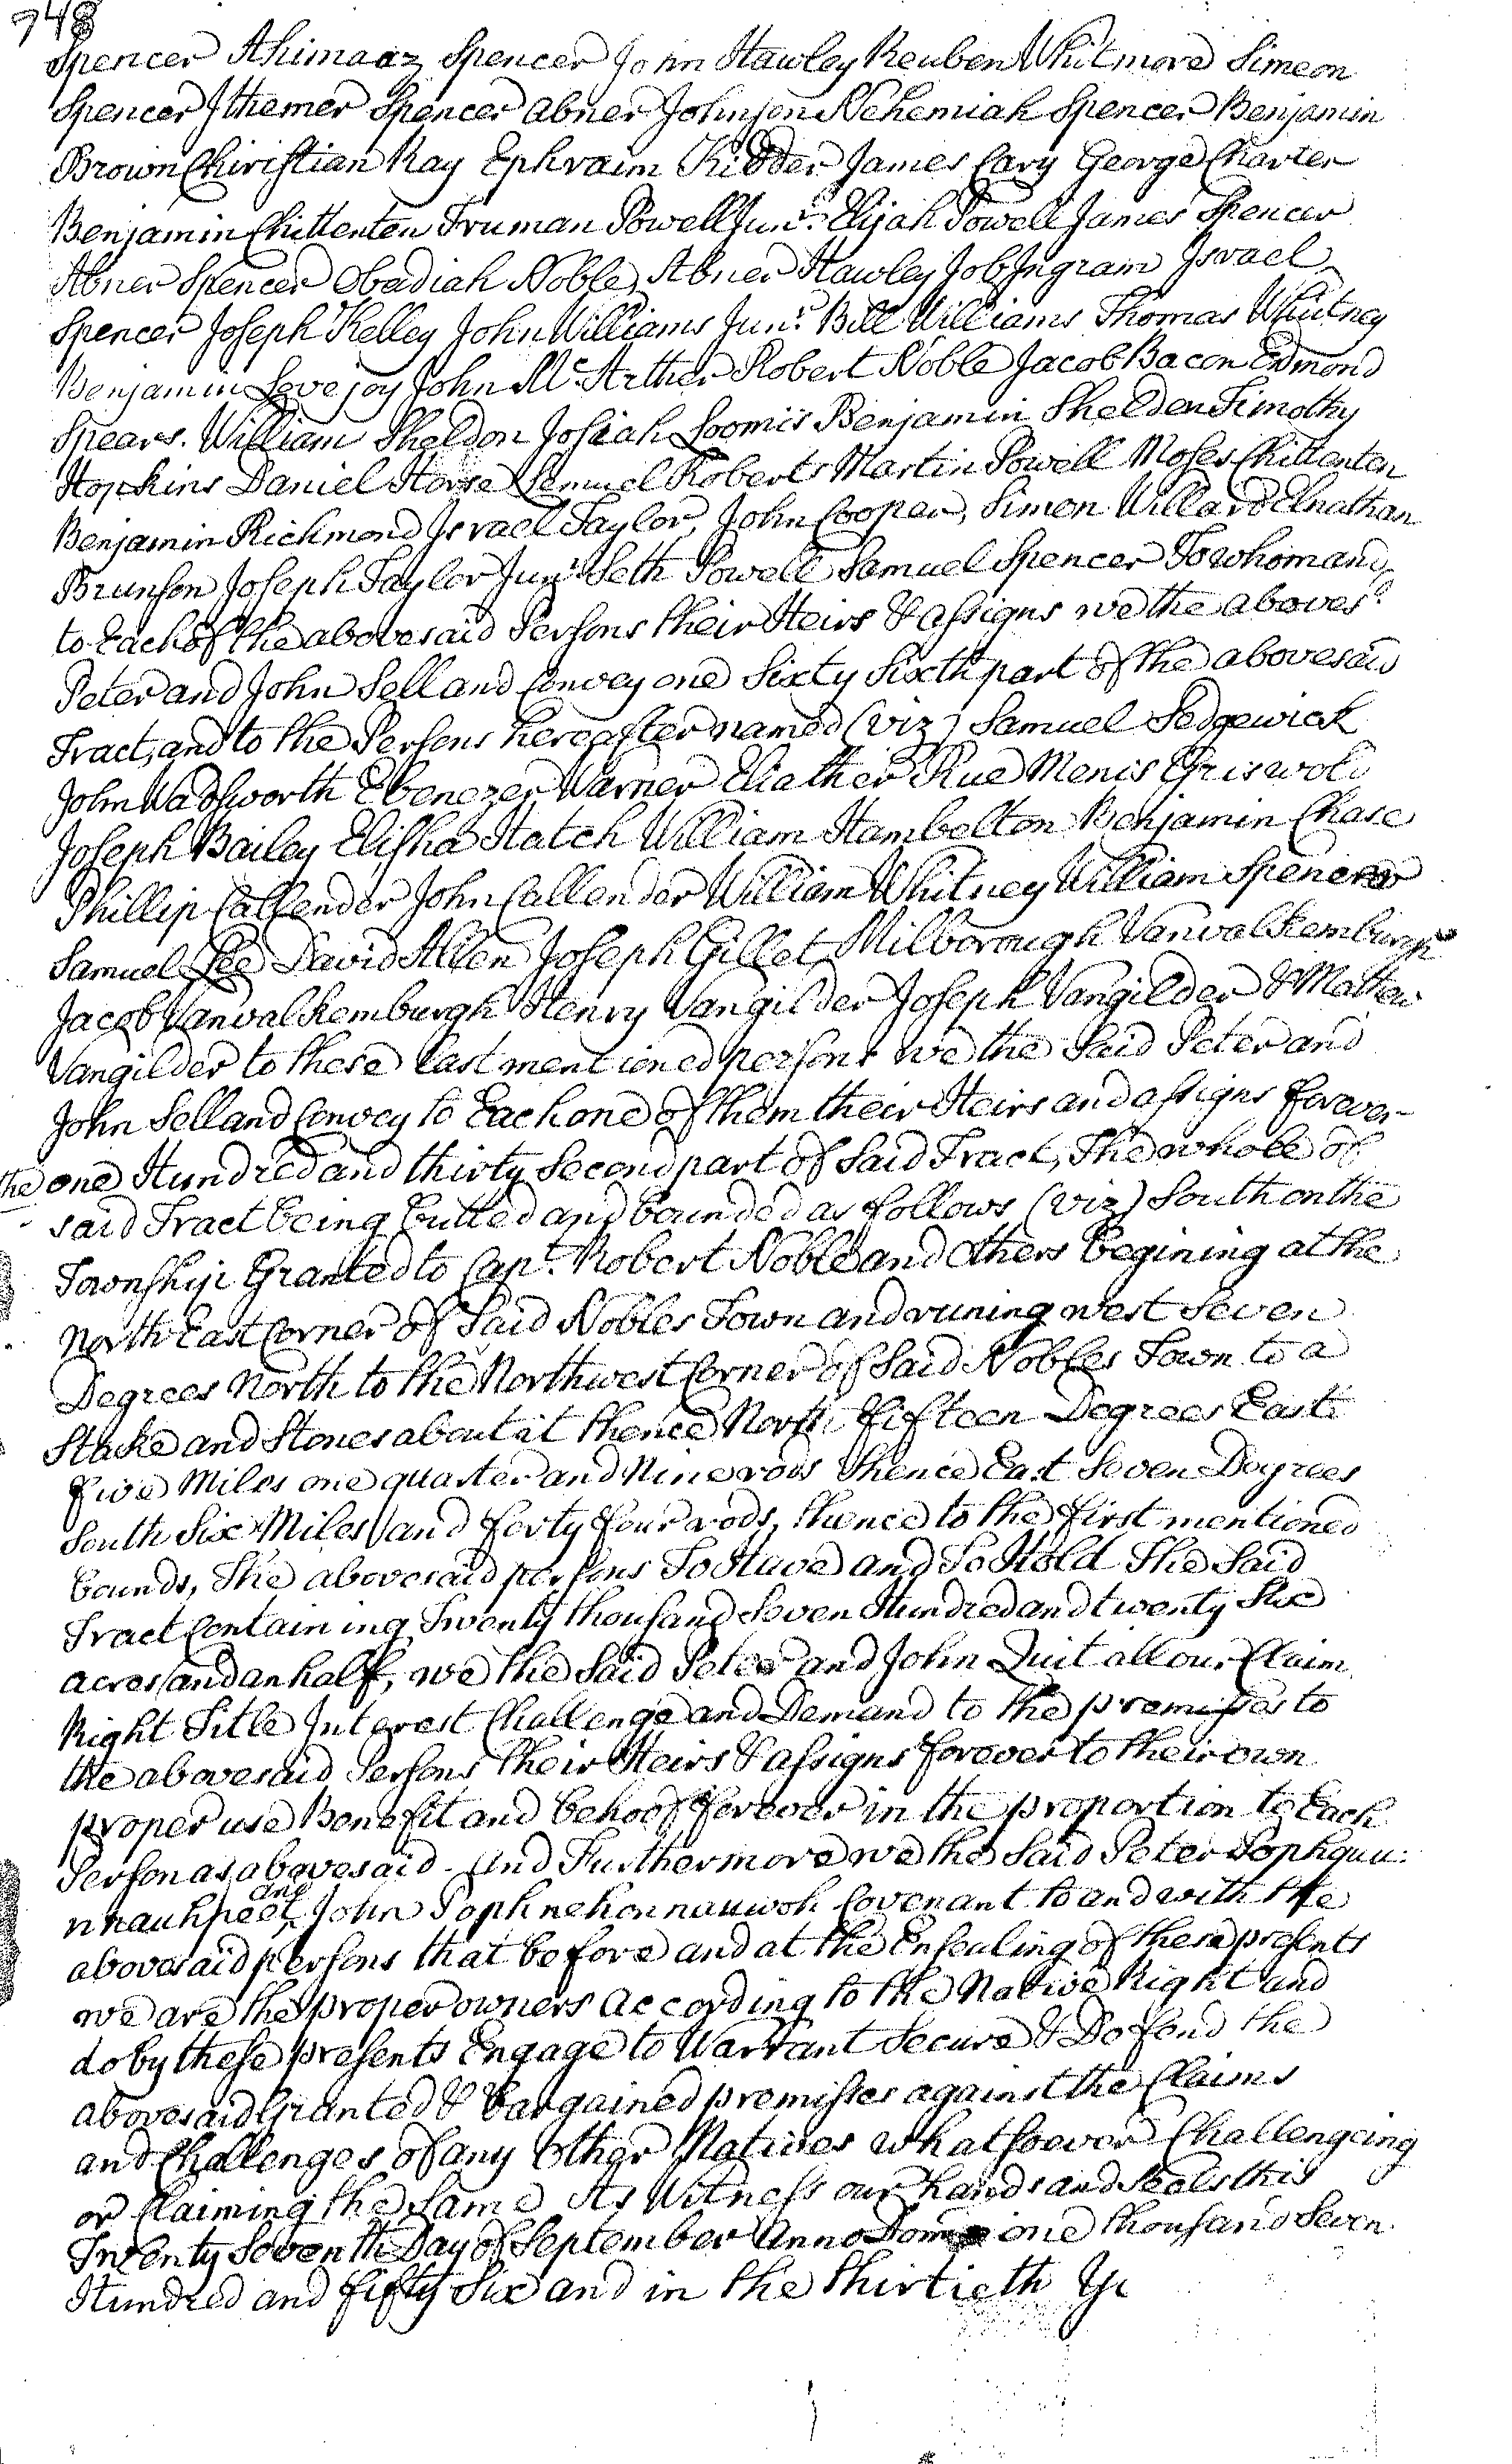 748
Spencer Ahimaaz Spencer John Hawley Reuben Whitmore Simeon
Spencer Ithemer Spencer Abner Johnson Nehemiah Spencer Benjamin
Brown Christian Ray Ephraim Kidder James Cary George Charter
Benjamin Chittenten Truman Powell Junr. Elijah Powell James Spencer
Abner Spencer Obadiah Noble, Abner Hawley Job Ingram Israel
Spencer Joseph Kelley John Williams Junr. Bill Williams Thomas Whitney
Benjamin Lovejoy John Mc Arther Robert Noble Jacob Bacon Edmond
Spears. William Sheldon Josiah Loomis Benjamin Shelden Timothy
Hopkins Daniel Horse Lemuel Roberts Martin Powell Moses Chittenten
Benjamin Richmond Israel Taylor, John Cooper, Simon Willard Elnathan
Brunson Joseph Taylor Junr. Seth Powell Samuel Spencer To whom and
to Each of the abovesaid Persons their Heirs & assigns we the aboves.d
Peter and John Sell and Convey one Sixty Sixth part of the abovesaid
Tract, and to the Persons hereafter named (viz) Samuel Sedgewick
John Wadsworth Ebenezer Warner Eliather Rue Menis Griswold
Joseph Bailey Elisha Hatch William Hambelton Benjamin Chase
Phillip Callender John Callender William Whitney William Spencer
Samuel Lee David Allen Joseph Gillet, Milborough Vanvalkemburgh
Jacob Vanvalkemburgh Henry Vangilder Joseph Vangilder & Mathew
Vangilder to these last mentioned persons we the Said Peter and
John Sell and Convey to Each one of them their Heirs and assigns forever
the one Hundred and thirty Second part of Said Tract, The whole of
said Tract being butted and bounded as follows (viz) South on the
Township Granted to Capt. Robert Noble and others begining at the
North East Corner of Said Nobles Town and runing west Seven
Degrees North to the Northwest Corner of Said Nobles Town to a
Stake and Stones about it thence North fifteen Degrees East
five Miles one quarter and Nine rods thence East Seven Degrees
South Six Miles and forty four rods, thence to the first mentioned
bounds, The abovesaid persons To Have and To Hold The Said
Tract Containing Twenty thousand Seven Hundred and twenty Six
acres and an half, we the Said Peter and John Quit all our Claim
Right Title Interest Challenge and Demand to the premisses to
the abovesaid Persons their Heirs & assigns forever to their own
proper use Benefit and behoof forever in the proportion to Each
Person as abovesaid - And Furthermore we the Said Peter Pophquu:
nnauhpeet and John Pophnehonnauwoh Covenant to and with the
abovesaid persons that before and at the Ensealing of these presents
we are the proper owners according to the Native Right and
do by these presents Engage to Warrant Secure & Defend the
abovesaid Granted & bargained premisses against the Claims
and Challenges of any other Natives whatsoever Challengeing
or Claiming the Same As Witness our hands and Seals this
Twenty Seventh Day of September Anno Dom one thousand Seven
Hundred and fifty Six and in the thirtieth Ye